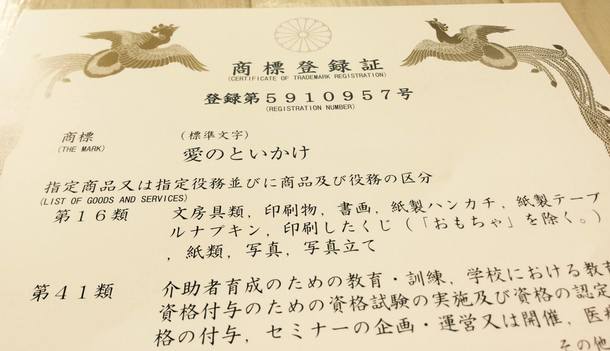 商標登録証
(CERTIFICATE OF TRADEMARK REGISTRATION)
登録第5910957号
(REGISTRATION NUMBER)
商標
(標準文字)
(THE MARK)
愛のといかけ
指定商品又は指定役務並びに商品及び役務の区分
(LIST OF GOODS AND SERVICES)
第16類 文房具類,印刷物,書画,紙製ハンカチ,紙製テーブ
ルナプキン,印刷したくじ(「おもちゃ」を除く。)
,紙類,写真,写真立て
第41類 介助者育成のための教育・訓練,学校における教育
資格付与のための資格試験の実施及び資格の認定
格の付与,セミナーの企画・運営又は開催,医療
その他